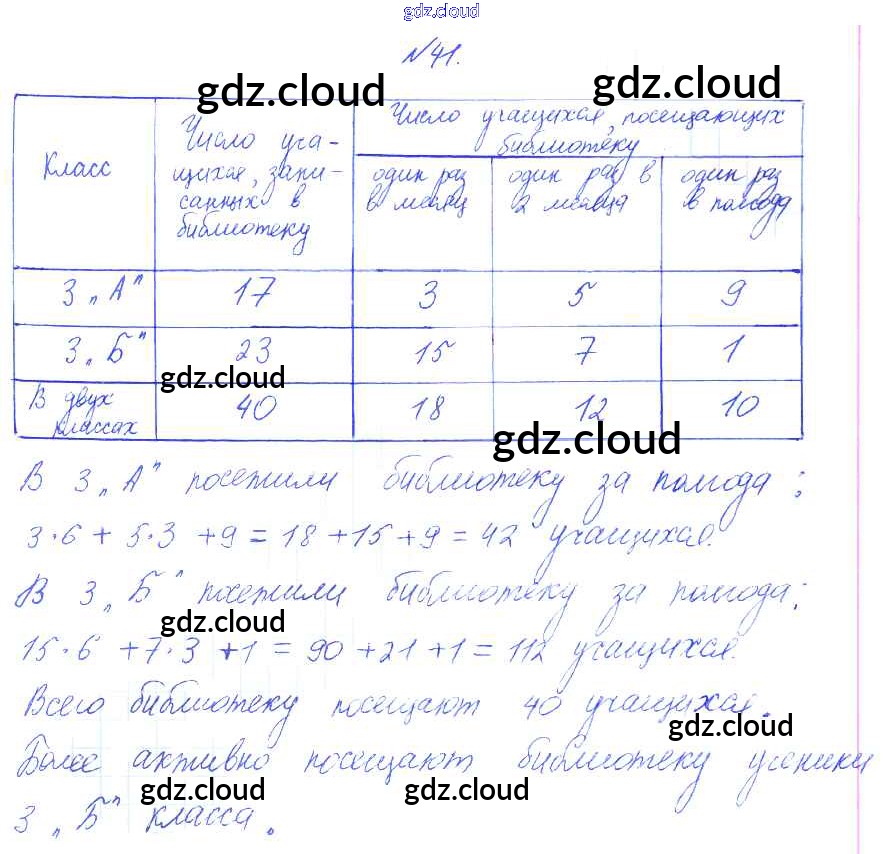 gdz.cloud
№41.
gdz.cloud gdz.cloud
Класс
Число уча-
щихся, запи-
санных в
библиотеку
Число учащихся, посещающих
библиотеку
один раз
в месяц
один раз в
2 месяца
один раз
в полгода
3 „А" 17 3 5 9
3 „Б" 23 15 7 1
gdz.cloud
В двух
классах 40 18 12 10
gdz.cloud
В 3 „А" посетили библиотеку за полгода:
3·6 + 5·3 + 9 = 18 + 15 + 9 = 42 учащихся.
В 3 „Б" посетили библиотеку за полгода:
gdz.cloud
15·6 + 7·3 + 1 = 90 + 21 + 1 = 112 учащихся.
Всего библиотеку посещают 40 учащихся.
gdz.cloud
Более активно посещают библиотеку ученики
gdz.cloud gdz.cloud
3 „Б" класса.